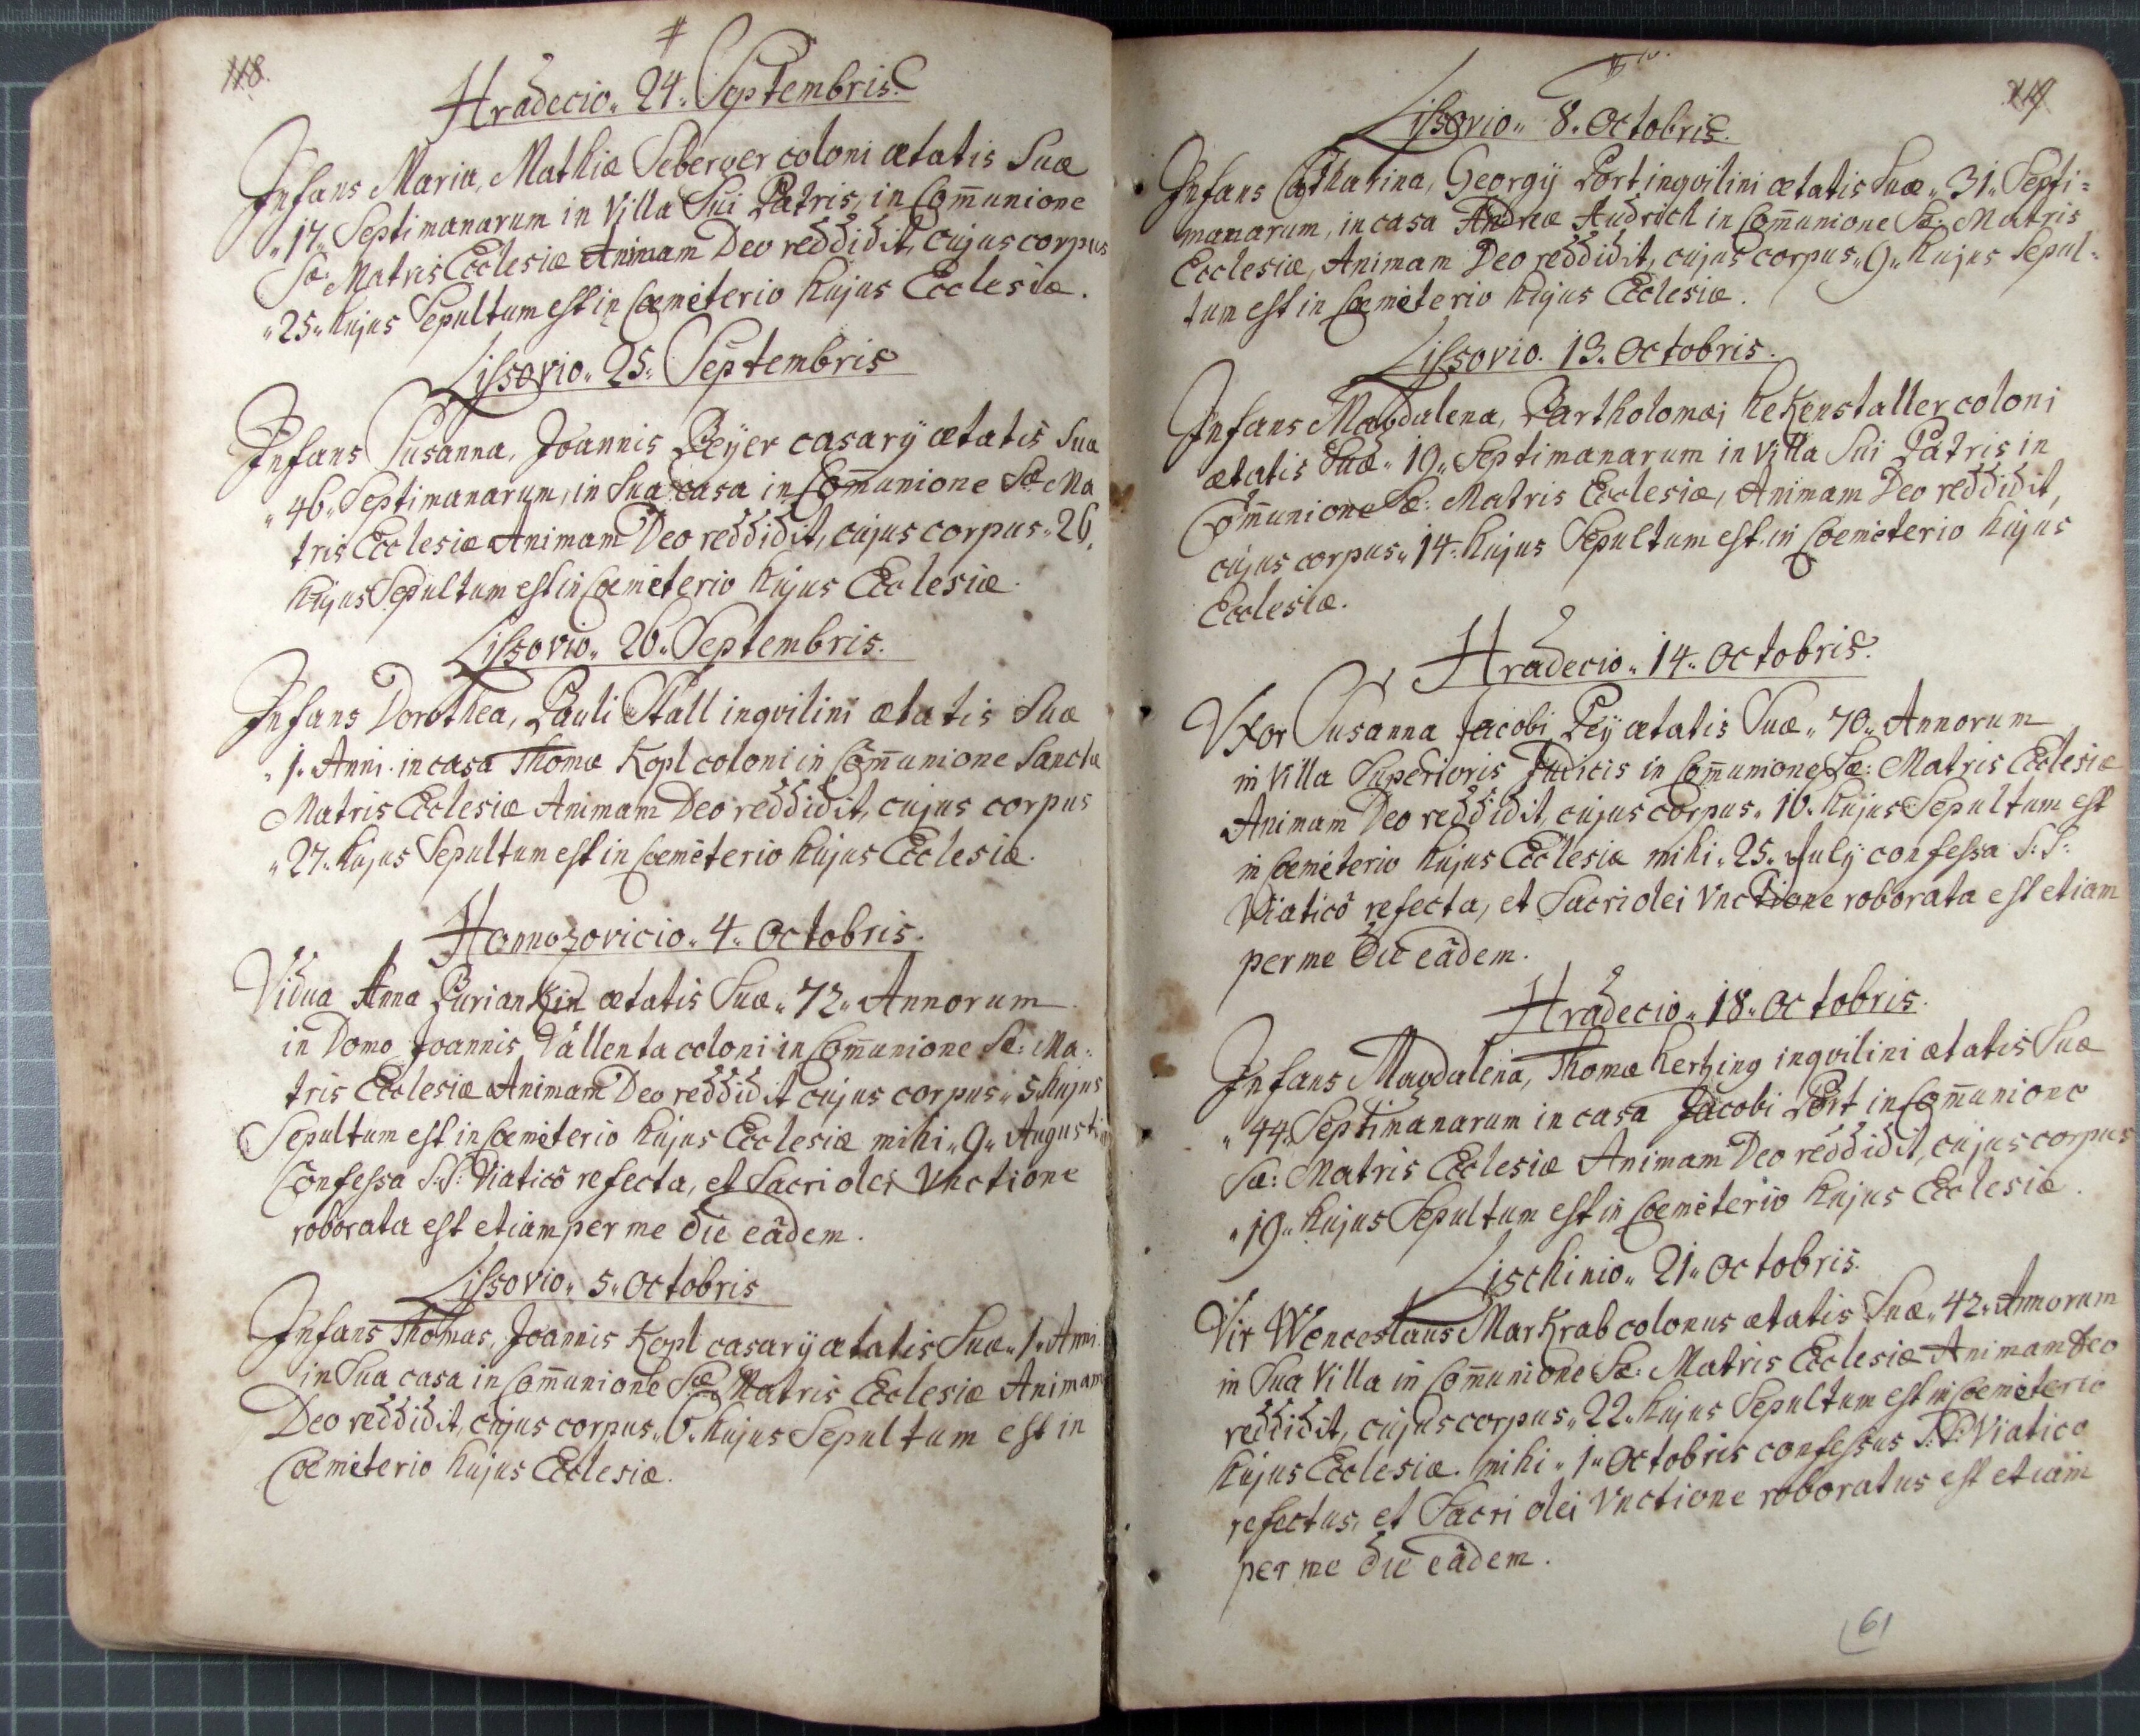 118.
Hradecio„ 24„ Septembris.
Infans Maria, Mathiæ Seberger coloni ætatis Suæ
„17„ Septimanarum in Villa Sui Patris, in Com̄unione
Sæ: Matris Ecclesiæ Animam Deo reddidit, cujus corpus
„25„ hujus Sepultum est in Cœmeterio hujus Ecclesiæ.
Lissovio„ 25„ Septembris
Infans Susanna, Joannis Beÿer casarÿ ætatis Suæ
„46„ Septimanarum, in Sua casa in Com̄unione Sæ Ma
tris Ecclesiæ Animam Deo reddidit, cujus corpus„ 26„
hujus Sepultum est in Cœmeterio hujus Ecclesiæ.
Lissovio„ 26„ Septembris.
Infans Dorothea, Pauli Stall inqvilini ætatis Suæ
„1„ Anni in casa Thomæ Kopl coloni in Com̄unione Sanctæ
Matris Ecclesiæ Animam Deo reddidit, cujus corpus
„27„ hujus Sepultum est in Cœmeterio hujus Ecclesiæ.
Honnozovicio„ 4„ Octobris.
Vidua Anna Puriankin ætatis Suæ„ 72„ Annorum
in Domo Joannis Vallenta coloni in Com̄unione Sæ: Ma„
tris Ecclesiæ Animam Deo reddidit cujus corpus„ 5„ hujus
Sepultum est in Cœmeterio hujus Ecclesiæ mihi„ 9„ Augusti
Confessa S:S: Viaticô refecta, et Sacri olei Vnctione
roborata est etiam per me die eâdem.
Lissovio„ 5„ Octobris
Infans Thomas, Joannis Kopl casarÿ ætatis Suæ„ 1„ Anni
in Sua casa in Com̄unione Sæ Matris Ecclesiæ Animam
Deo reddidit, cujus corpus„ 6„ hujus Sepultum est in
Cœmeterio hujus Ecclesiæ.
119
Lissovio„ 8„ Octobris.
Infans Catharina, Georgÿ Port inqvilini ætatis Suæ„ 31„ Septi=
manarum, in casa Andreæ Audrich in Com̄unione Sæ: Matris
Ecclesiæ, Animam Deo reddidit, cujus corpus„ 9„ hujus Sepul„
tum est in Cœmeterio hujus Ecclesiæ.
Lissovio. 13„ Octobris.
Infans Magdalena, Bartholomæi Kekenstaller coloni
ætatis Suæ„ 19„ Septimanarum in Villa Sui Patris in
Com̄unione Sæ: Matris Ecclesiæ, Animam Deo reddidit,
cujus corpus„ 14„ hujus Sepultum est in Cœmeterio hujus
Ecclesiæ.
Hradecio„ 14„ Octobris.
Vxor Susanna Jacobi Peÿ ætatis Suæ„ 70„ Annorum
in Villa Superioris Judicis in Com̄unione Sæ: Matris Ecclesiæ
Animam Deo reddidit, cujus corpus„ 16„ hujus Sepultum est
in Cœmeterio hujus Ecclesiæ mihi„ 25„ Julÿ confessa S:S:
Viaticô refecta, et Sacri olei Vnctione roborata est etiam
per me die eâdem.
Hradecio„ 18„ Octobris.
Infans Magdalena, Thomæ Kerhing inqvilini ætatis Suæ
„44„ Septimanarum in casa Jacobi Port in Com̄unione
Sæ: Matris Ecclesiæ Animam Deo reddidit, cujus corpus
„19„ hujus Sepultum est in Cœmeterio hujus Ecclesiæ.
Lischinio„ 21„ Octobris.
Vir Wenceslaus Markrab colonus ætatis Suæ„ 42„ Annorum
in Sua Villa in Com̄unione Sæ: Matris Ecclesiæ Animam Deo
reddidit, cujus corpus„ 22„ hujus Sepultum est in Cœmeterio
hujus Ecclesiæ. mihi„ 1„ Octobris confessus S:S: Viatico
refectus, et Sacri olei Vnctione roboratus est etiam
per me die eâdem.
61